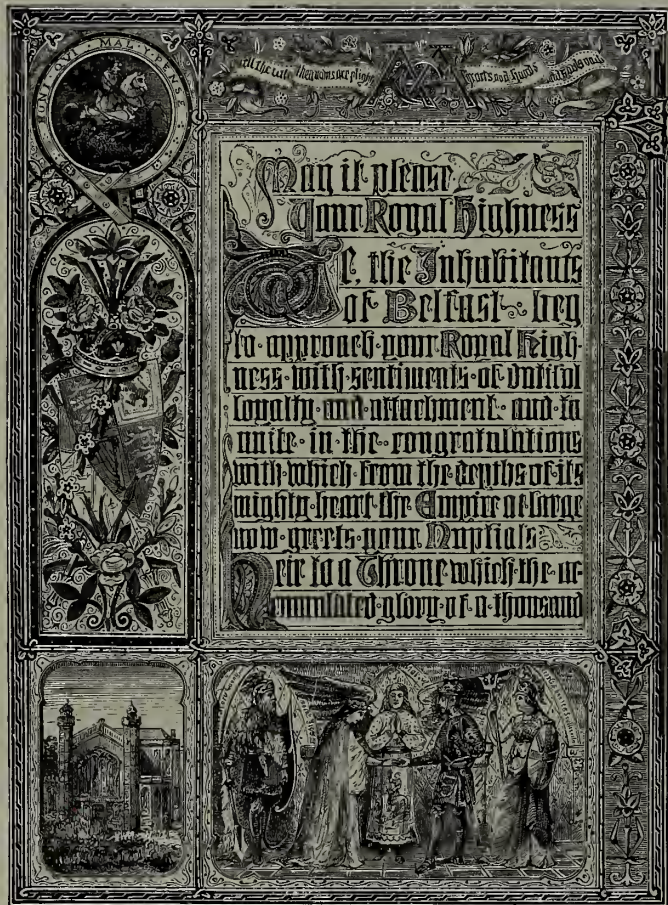 HONI · SOIT · QUI · MAL · Y · PENSE
hearts and hands
May it please
Your Royal Highness
We, the Inhabitants
of Belfast beg
to · approach · your · Royal High-
ness · with · sentiments · of · dutiful
loyalty · and · attachment · and · to
unite · in · the · congratulations
with · which · from the depths of its
mighty · heart · the Empire at large
now · greets · your Nuptials
Heir to a Throne which · the · ac-
cumulated · glory · of · a · thousand